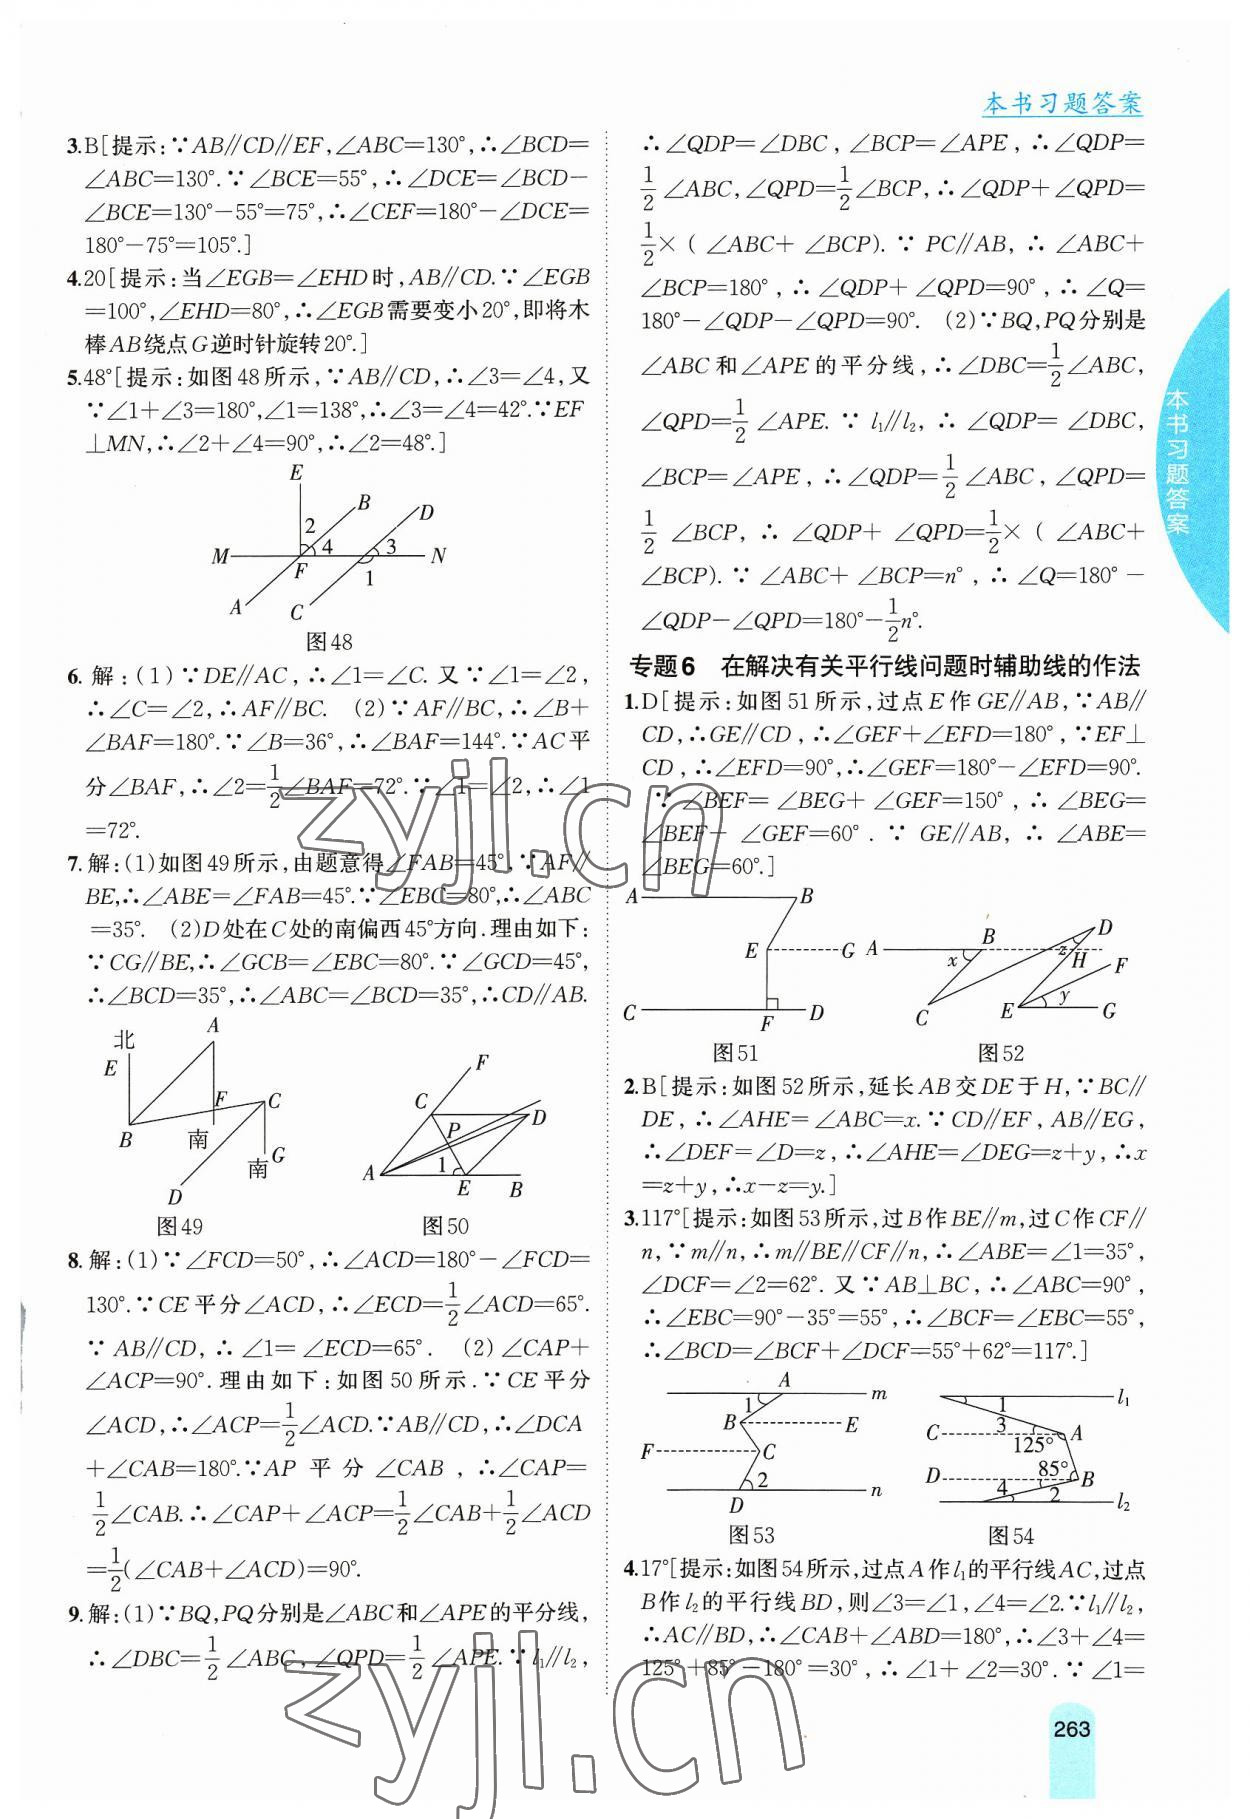 本书习题答案
3.B[提示:∵AB∥CD∥EF,∠ABC=130°,∴∠BCD=
∠ABC=130°.∵∠BCE=55°,∴∠DCE=∠BCD−
∠BCE=130°−55°=75°,∴∠CEF=180°−∠DCE=
180°−75°=105°.]
4.20[提示:当∠EGB=∠EHD时,AB∥CD.∵∠EGB
=100°,∠EHD=80°,∴∠EGB需要变小20°,即将木
棒AB绕点G逆时针旋转20°.]
5.48°[提示:如图48所示,∵AB∥CD,∴∠3=∠4,又
∵∠1+∠3=180°,∠1=138°,∴∠3=∠4=42°.∵EF
⊥MN,∴∠2+∠4=90°,∴∠2=48°.]
E
B
D
2
M
4
3
N
F
1
A
C
图48
6.解:(1)∵DE∥AC,∴∠1=∠C.又∵∠1=∠2,
∴∠C=∠2,∴AF∥BC. (2)∵AF∥BC,∴∠B+
∠BAF=180°.∵∠B=36°,∴∠BAF=144°.∵AC平
分∠BAF,∴∠2=1/2∠BAF=72°.∵∠1=∠2,∴∠1
=72°.
7.解:(1)如图49所示,由题意得∠FAB=45°,∵AF∥
BE,∴∠ABE=∠FAB=45°.∵∠EBC=80°,∴∠ABC
=35°. (2)D处在C处的南偏西45°方向.理由如下:
∵CG∥BE,∴∠GCB=∠EBC=80°.∵∠GCD=45°,
∴∠BCD=35°,∴∠ABC=∠BCD=35°,∴CD∥AB.
北
A
E
F
C
B
南
G
南
D
图49
F
C
D
P
A
1
E
B
图50
8.解:(1)∵∠FCD=50°,∴∠ACD=180°−∠FCD=
130°.∵CE平分∠ACD,∴∠ECD=1/2∠ACD=65°.
∵AB∥CD,∴∠1=∠ECD=65°. (2)∠CAP+
∠ACP=90°.理由如下:如图50所示.∵CE平分
∠ACD,∴∠ACP=1/2∠ACD.∵AB∥CD,∴∠DCA
+∠CAB=180°.∵AP平分∠CAB,∴∠CAP=
1/2∠CAB.∴∠CAP+∠ACP=1/2∠CAB+1/2∠ACD
=1/2(∠CAB+∠ACD)=90°.
9.解:(1)∵BQ,PQ分别是∠ABC和∠APE的平分线,
∴∠DBC=1/2∠ABC,∠QPD=1/2∠APE.∵l₁∥l₂,
∴∠QDP=∠DBC,∠BCP=∠APE,∴∠QDP=
1/2∠ABC,∠QPD=1/2∠BCP,∴∠QDP+∠QPD=
1/2×(∠ABC+∠BCP).∵PC∥AB,∴∠ABC+
∠BCP=180°,∴∠QDP+∠QPD=90°,∴∠Q=
180°−∠QDP−∠QPD=90°. (2)∵BQ,PQ分别是
∠ABC和∠APE的平分线,∴∠DBC=1/2∠ABC,
∠QPD=1/2∠APE.∵l₁∥l₂,∴∠QDP=∠DBC,
∠BCP=∠APE,∴∠QDP=1/2∠ABC,∠QPD=
1/2∠BCP,∴∠QDP+∠QPD=1/2×(∠ABC+
∠BCP).∵∠ABC+∠BCP=n°,∴∠Q=180°−
∠QDP−∠QPD=180°−1/2n°.
专题6 在解决有关平行线问题时辅助线的作法
1.D[提示:如图51所示,过点E作GE∥AB,∵AB∥
CD,∴GE∥CD,∴∠GEF+∠EFD=180°,∵EF⊥
CD,∴∠EFD=90°,∴∠GEF=180°−∠EFD=90°.
∵∠BEF=∠BEG+∠GEF=150°,∴∠BEG=
∠BEF−∠GEF=60°.∵GE∥AB,∴∠ABE=
∠BEG=60°.]
A
B
E
G
C
F
D
图51
A
B
D
x
z
H
F
C
E
y
G
图52
2.B[提示:如图52所示,延长AB交DE于H,∵BC∥
DE,∴∠AHE=∠ABC=x.∵CD∥EF,AB∥EG,
∴∠DEF=∠D=z,∴∠AHE=∠DEG=z+y,∴x
=z+y,∴x−z=y.]
3.117°[提示:如图53所示,过B作BE∥m,过C作CF∥
n,∵m∥n,∴m∥BE∥CF∥n,∴∠ABE=∠1=35°,
∠DCF=∠2=62°.又∵AB⊥BC,∴∠ABC=90°,
∴∠EBC=90°−35°=55°,∴∠BCF=∠EBC=55°,
∴∠BCD=∠BCF+∠DCF=55°+62°=117°.]
A
m
1
B
E
F
C
2
n
D
图53
l₁
1
3
C
A
125°
85°
D
B
4
2
l₂
图54
4.17°[提示:如图54所示,过点A作l₁的平行线AC,过点
B作l₂的平行线BD,则∠3=∠1,∠4=∠2.∵l₁∥l₂,
∴AC∥BD,∴∠CAB+∠ABD=180°,∴∠3+∠4=
125°+85°−180°=30°,∴∠1+∠2=30°.∵∠1=
本书习题答案
263
zyjl.cn
zyjl.cn